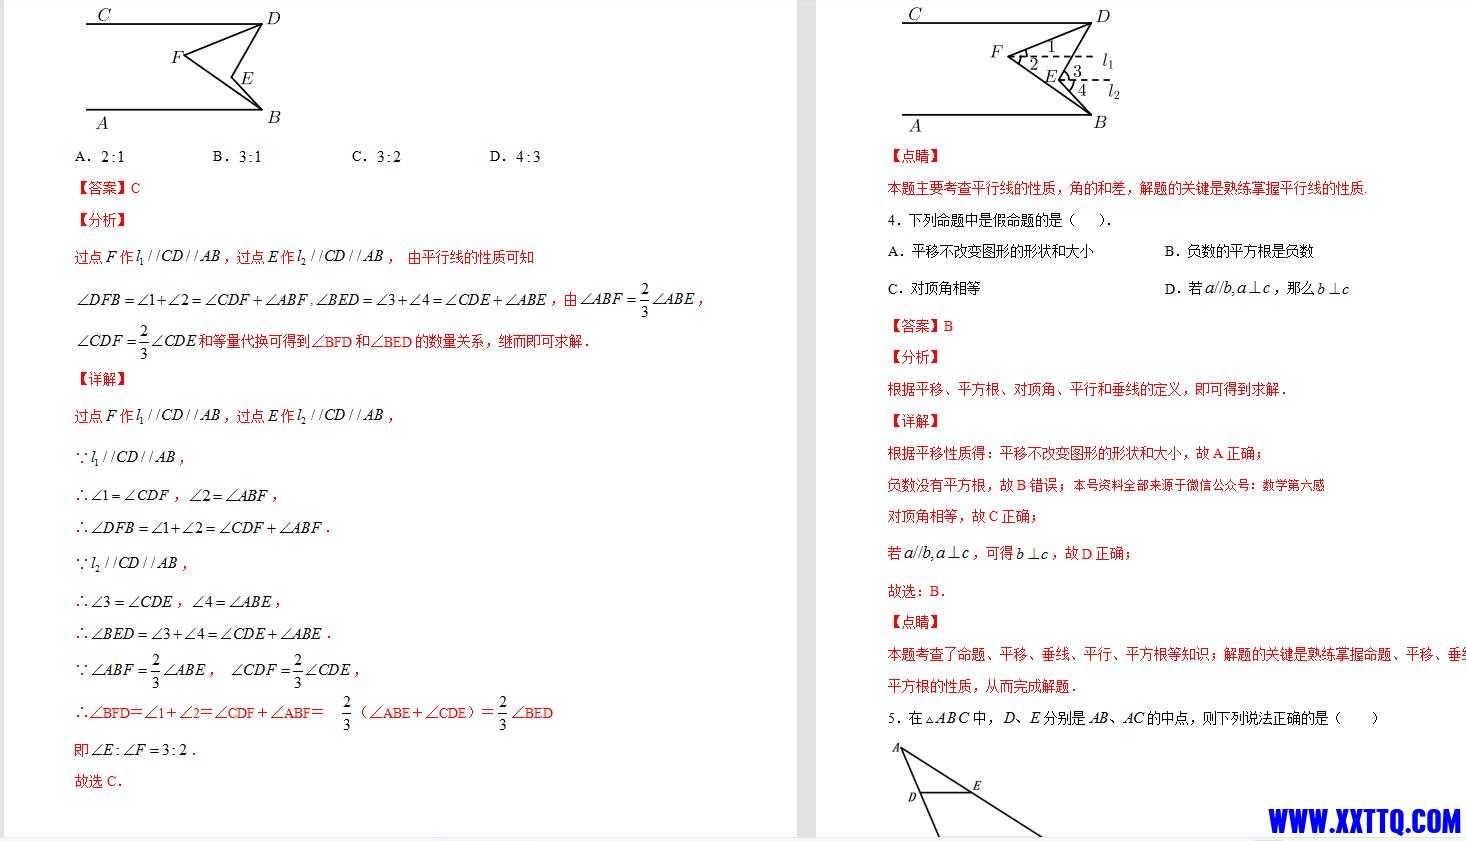 C D
F
E
A B
A．2:1 B．3:1 C．3:2 D．4:3
【答案】C
【分析】
过点F作l₁//CD//AB，过点E作l₂//CD//AB， 由平行线的性质可知
∠DFB=∠1+∠2=∠CDF+∠ABF,∠BED=∠3+∠4=∠CDE+∠ABE，由∠ABF=2/3∠ABE，
∠CDF=2/3∠CDE和等量代换可得到∠BFD和∠BED的数量关系，继而即可求解．
【详解】
过点F作l₁//CD//AB，过点E作l₂//CD//AB，
∵l₁//CD//AB，
∴∠1=∠CDF，∠2=∠ABF，
∴∠DFB=∠1+∠2=∠CDF+∠ABF．
∵l₂//CD//AB，
∴∠3=∠CDE，∠4=∠ABE，
∴∠BED=∠3+∠4=∠CDE+∠ABE．
∵∠ABF=2/3∠ABE， ∠CDF=2/3∠CDE，
∴∠BFD＝∠1＋∠2＝∠CDF＋∠ABF＝ 2/3（∠ABE＋∠CDE）＝2/3∠BED
即∠E:∠F=3:2．
故选C．
C D
F 1 l₁
2 E 3
4 l₂
A B
【点睛】
本题主要考查平行线的性质，角的和差，解题的关键是熟练掌握平行线的性质.
4．下列命题中是假命题的是（ ）．
A．平移不改变图形的形状和大小 B．负数的平方根是负数
C．对顶角相等 D．若a//b,a⊥c，那么b⊥c
【答案】B
【分析】
根据平移、平方根、对顶角、平行和垂线的定义，即可得到求解．
【详解】
根据平移性质得：平移不改变图形的形状和大小，故A正确；
负数没有平方根，故B错误；本号资料全部来源于微信公众号：数学第六感
对顶角相等，故C正确；
若a//b,a⊥c，可得b⊥c，故D正确；
故选：B．
【点睛】
本题考查了命题、平移、垂线、平行、平方根等知识；解题的关键是熟练掌握命题、平移、垂线
平方根的性质，从而完成解题．
5．在△ABC中，D、E分别是AB、AC的中点，则下列说法正确的是（ ）
A
D E
WWW.XXTTQ.COM